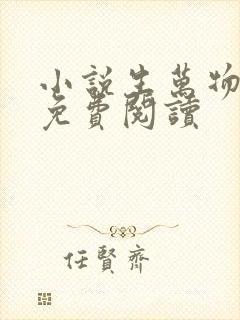 小說生萬物
免費閱讀
任賢齊